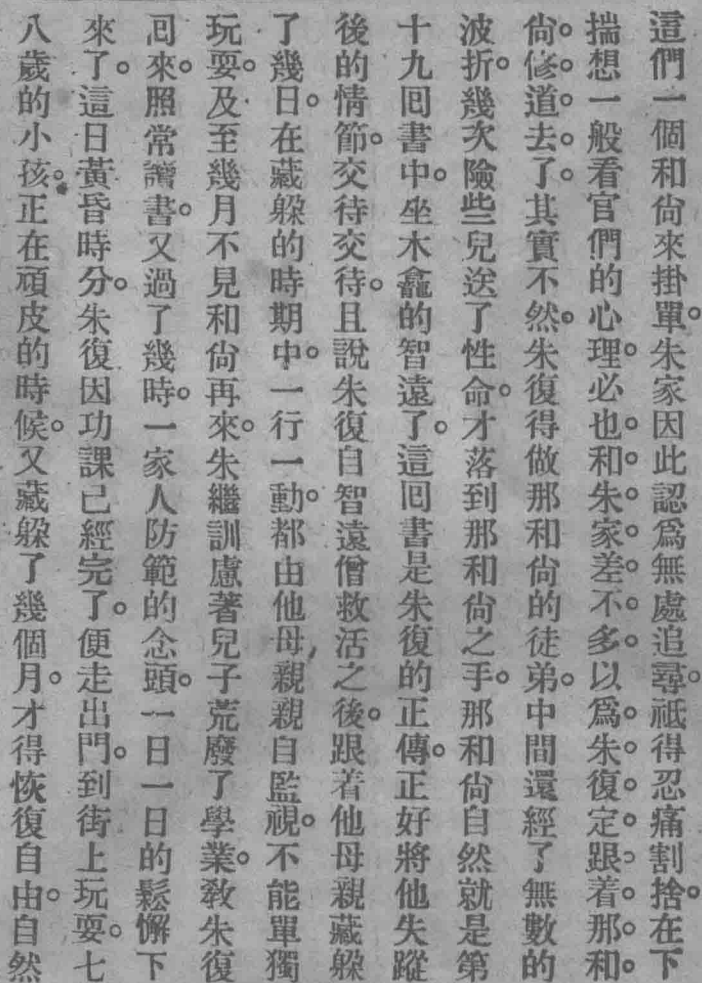 這們一個和尙來掛單。朱家因此認爲無處追尋。祗得忍痛割捨。在下
揣想一般看官們的心理。必也和朱家差不多。以爲朱復定跟着那和
尙修道去了。其實不然。朱復得做那和尙的徒弟。中間還經了無數的
波折。幾次險些兒送了性命。才落到那和尙之手。那和尙自然就是第
十九囘書中。坐木龕的智遠了。這囘書是朱復的正傳。正好將他失蹤
後的情節。交待交待。且說朱復自智遠僧救活之後。跟着他母親藏躱
了幾日。在藏躱的時期中。一行一動。都由他母親親自監視。不能單獨
玩耍。及至幾月不見和尙再來。朱繼訓慮著兒子荒廢了學業。敎朱復
囘來。照常讀書。又過了幾時。一家人防範的念頭。一日一日的鬆懈下
來了。這日黃昏時分。朱復因功課已經完了。便走出門。到街上玩耍。七
八歲的小孩。正在頑皮的時候。又藏躱了幾個月。才得恢復自由。自然